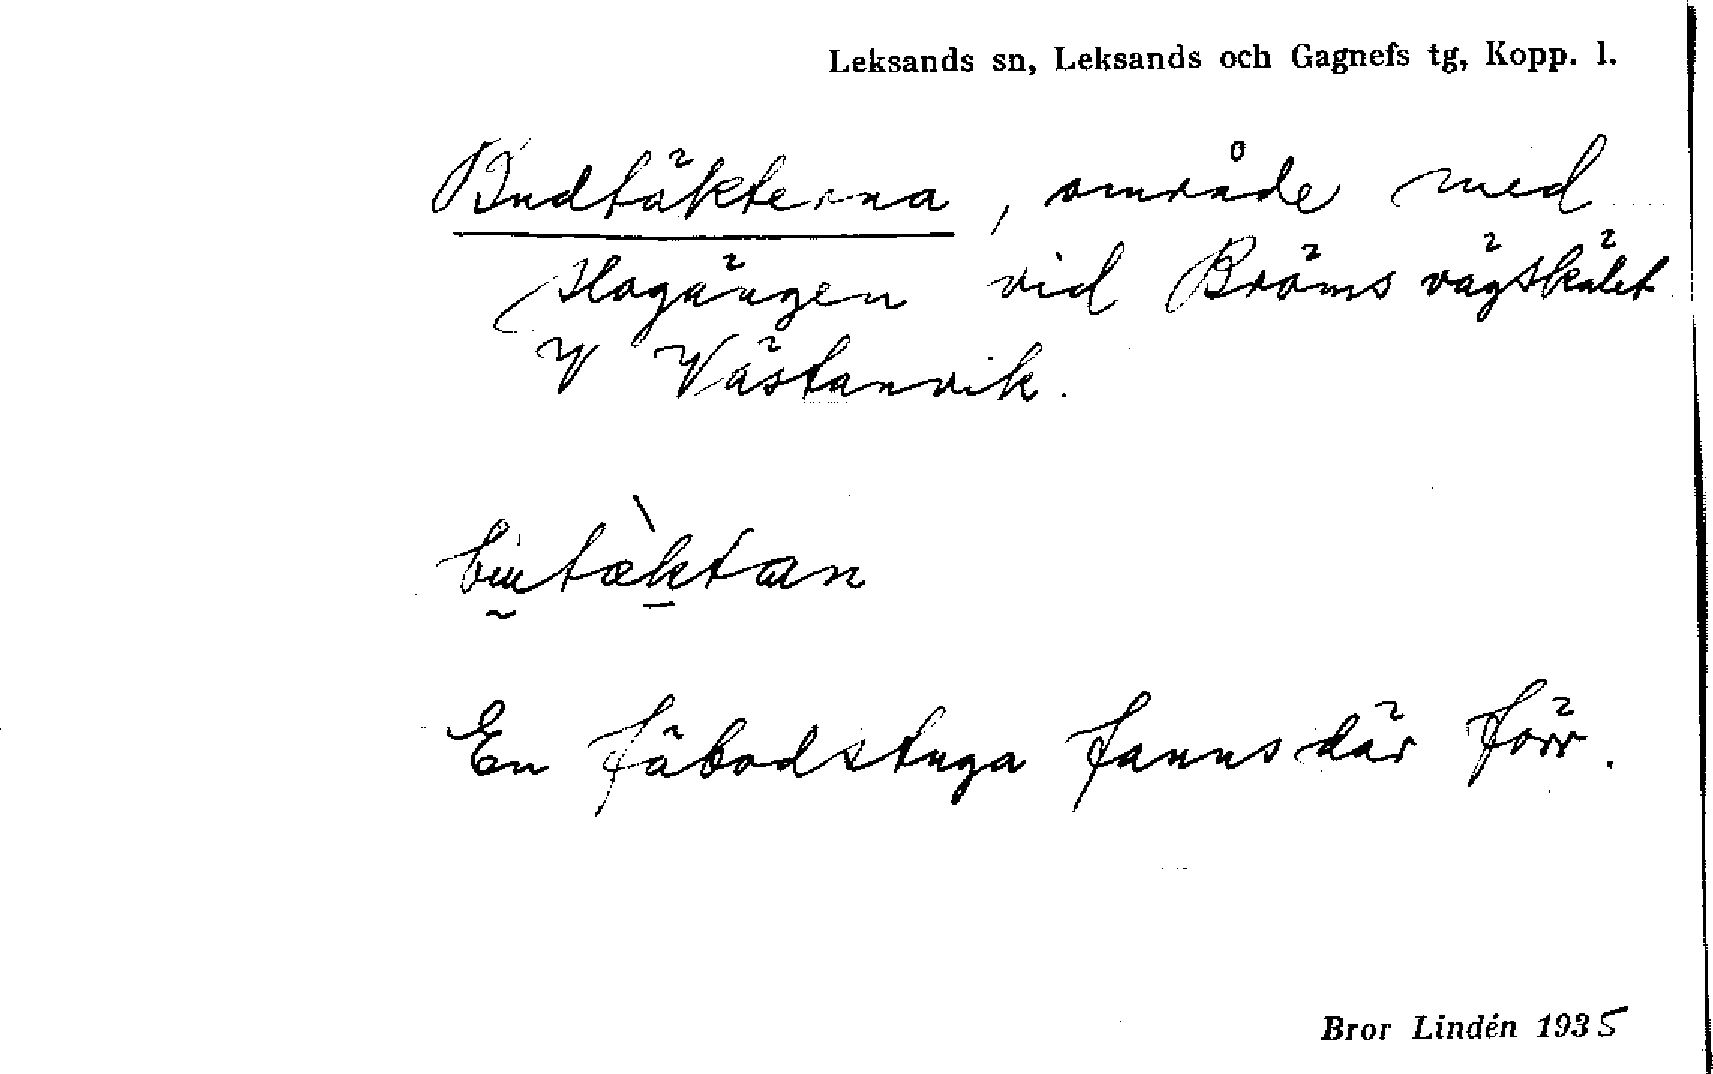 Leksands sn, Leksands och Gagnefs tg, Kopp. l.
Budtäkterna, område med
slogängen vid Bröms vägskälet
V Västanvik.
En fäbodstuga fanns där förr.
Bror Lindén 1935